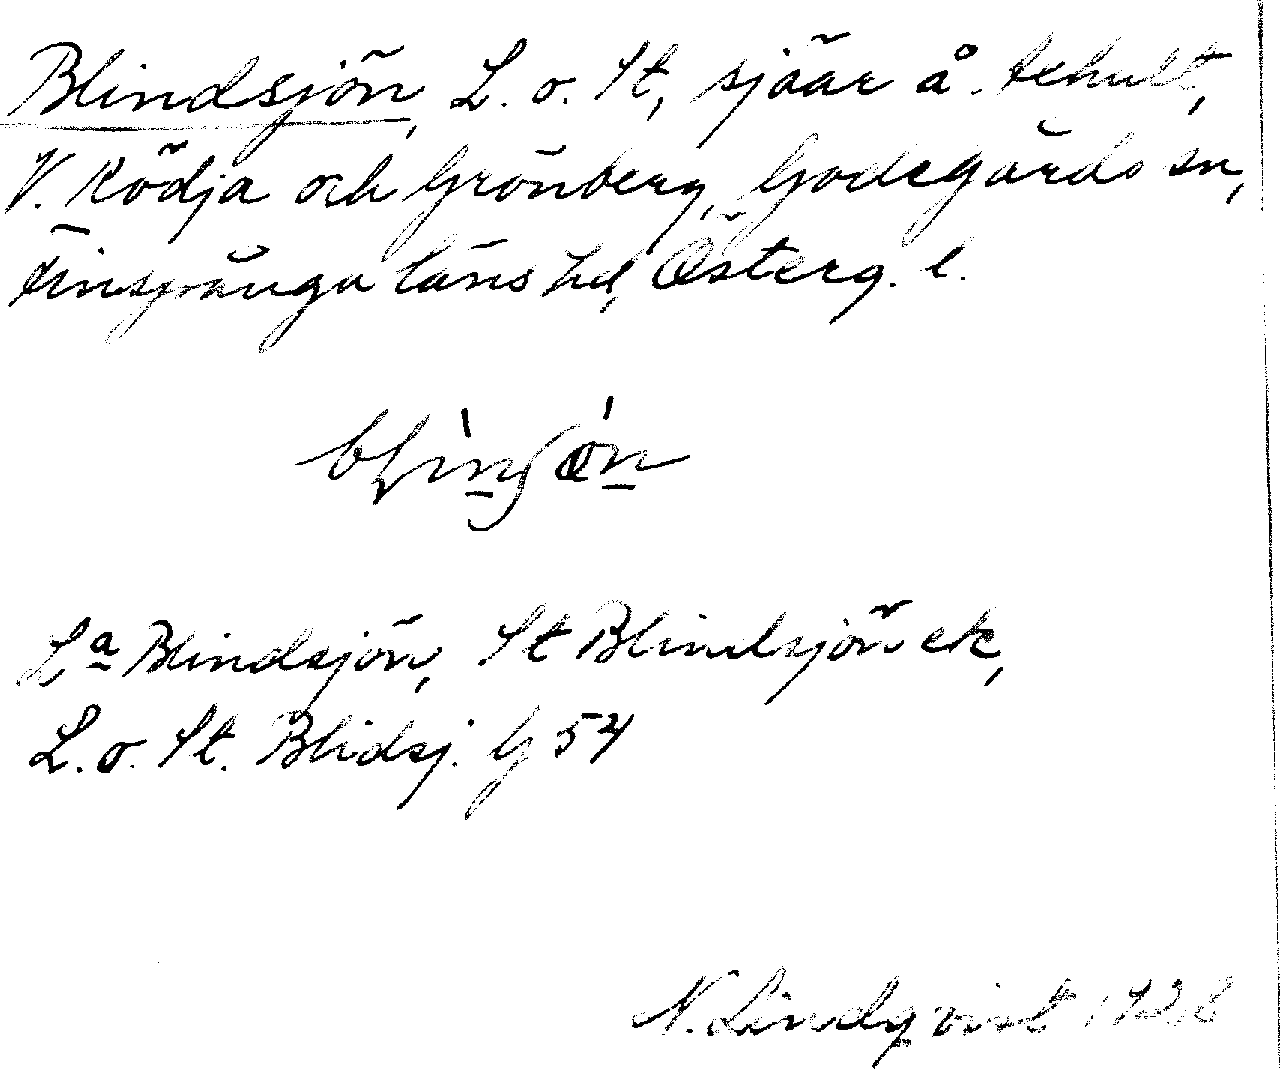 Blindsjön, L. o. St, sjöar å. Hehult,
V. Rödja och Grönberg, Godegårds sn,
Finspånga läns hd, Österg. l.
La Blindsjön, St Blindsjön ek,
L. o. St. Blidsj. G 54
N. Lindqvist 1928